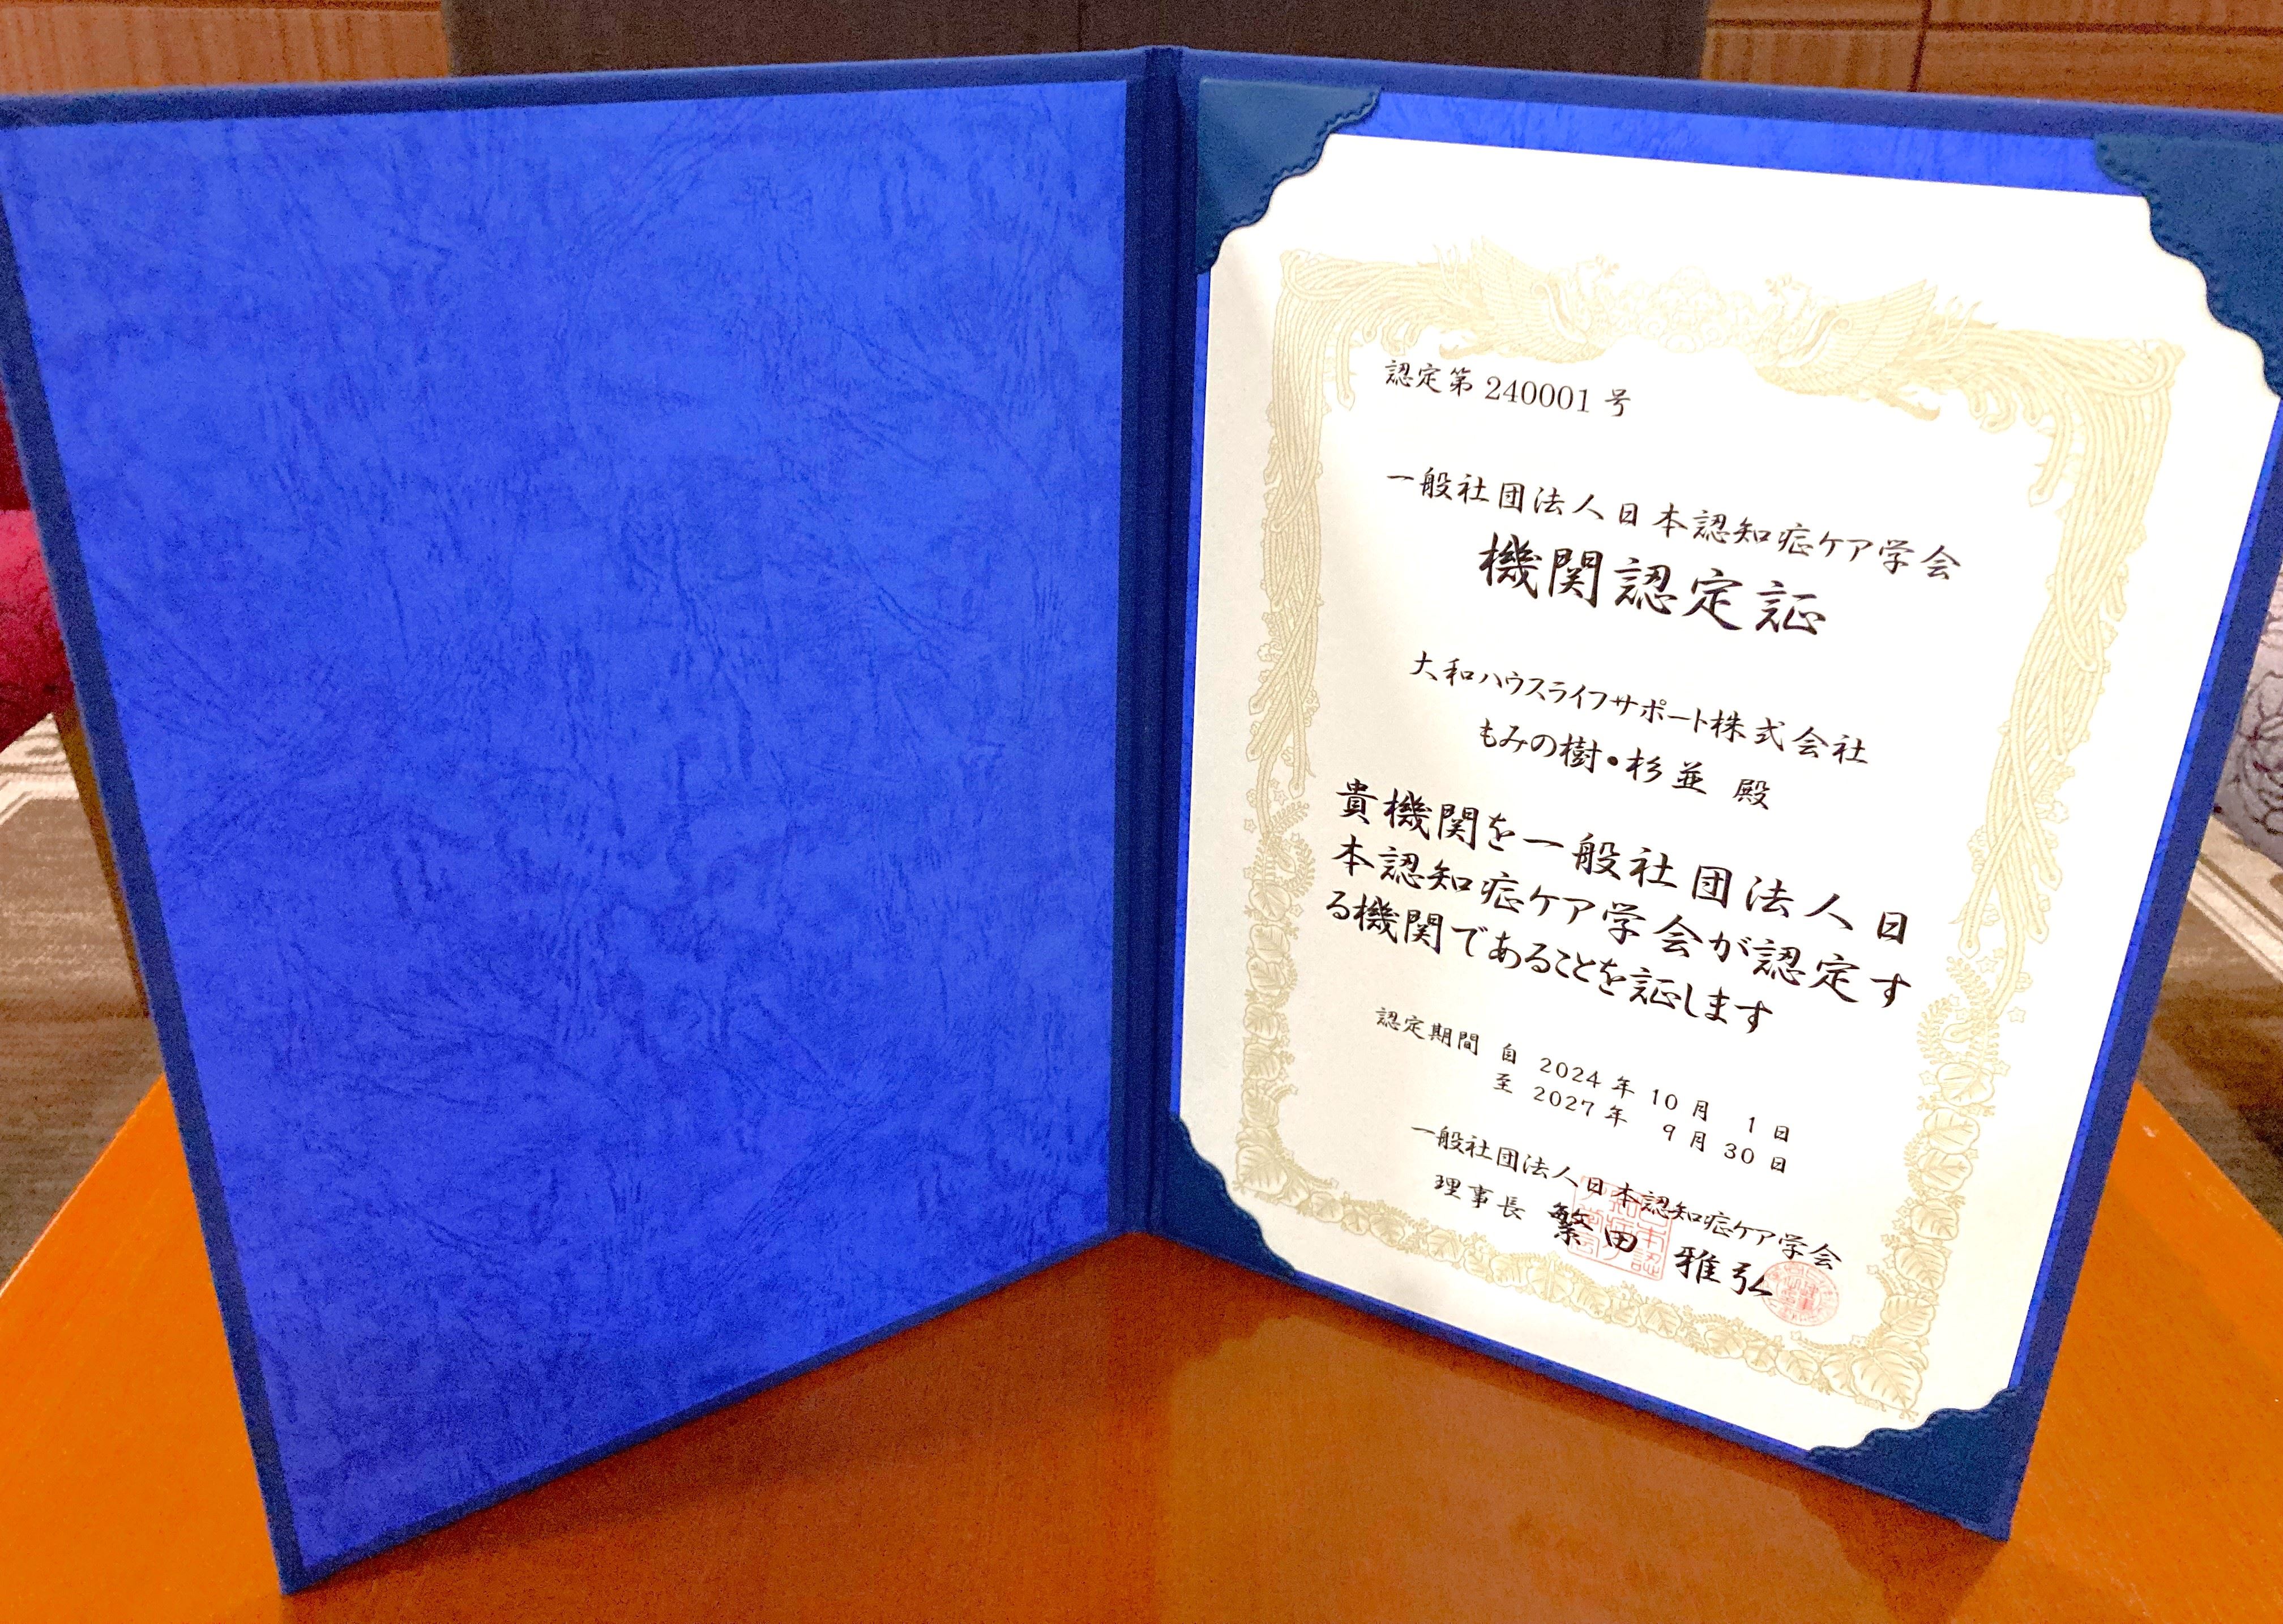 認定第 240001 号
一般社団法人日本認知症ケア学会
機関認定証
大和ハウスライフサポート株式会社
もみの樹・杉並 殿
貴機関を一般社団法人日
本認知症ケア学会が認定す
る機関であることを証します
認定期間 自 2024 年 10 月 1 日
至 2027 年 9 月 30 日
一般社団法人日本認知症ケア学会
理事長 繁田 雅弘